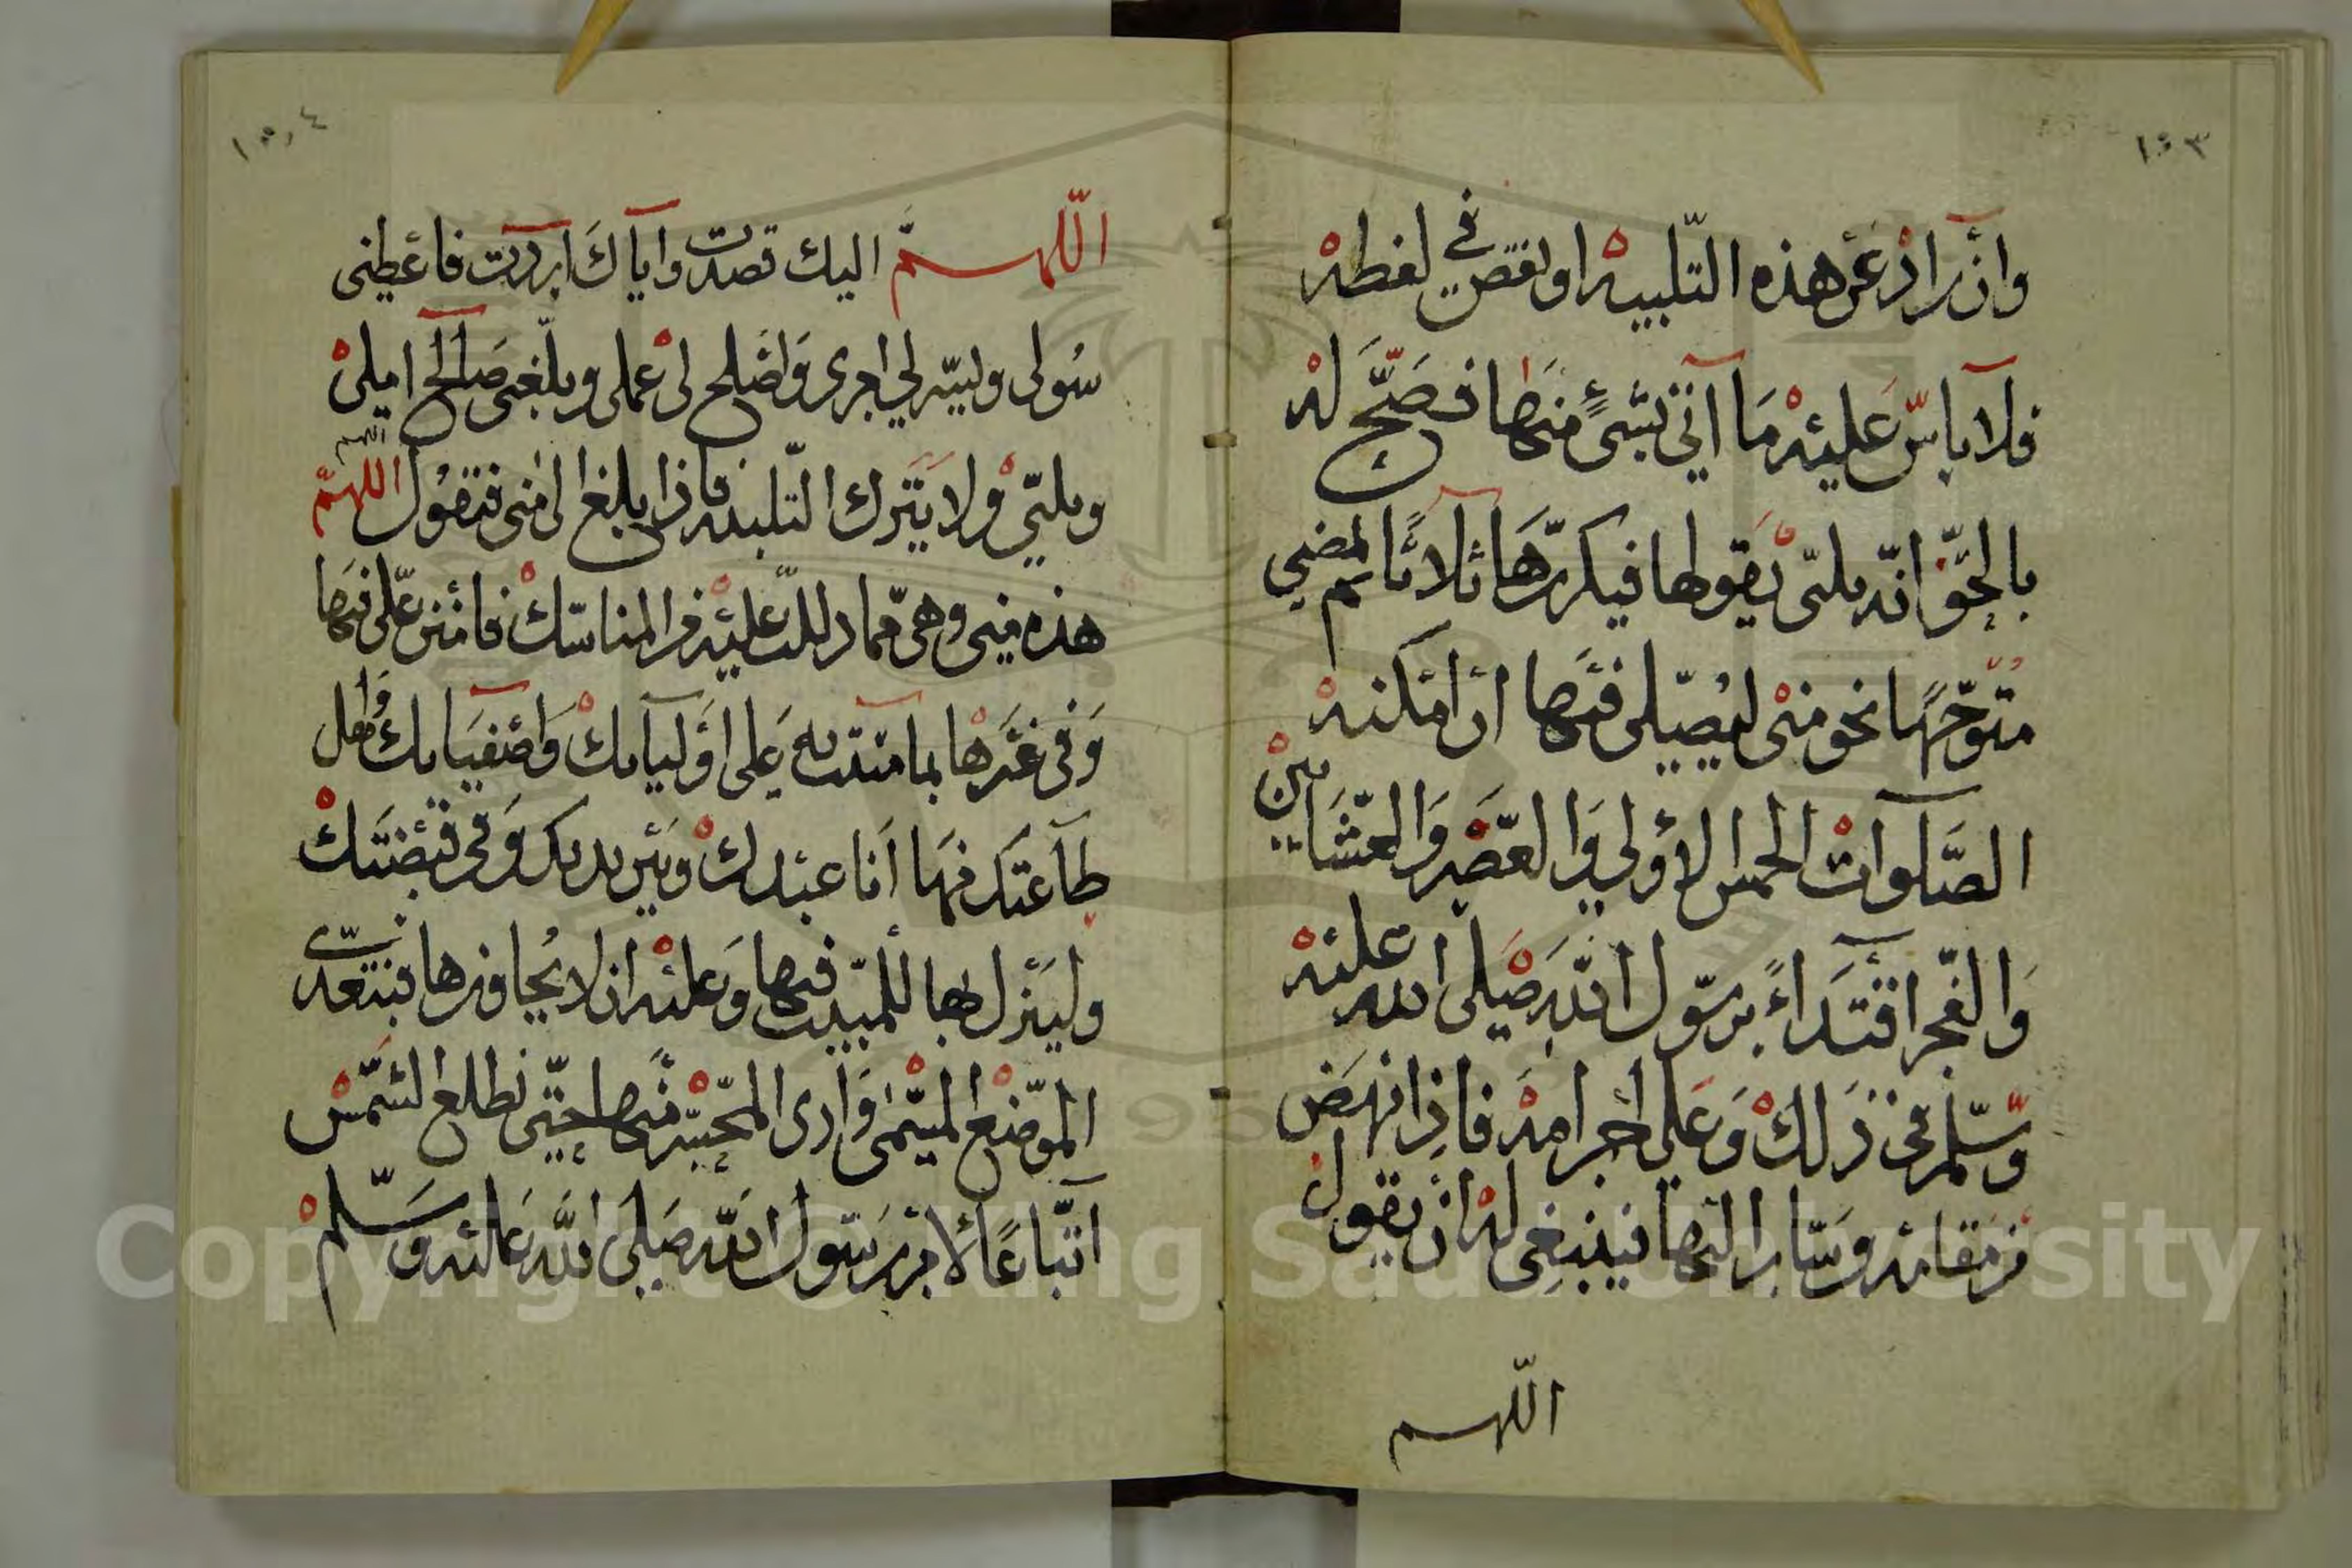 ١٥٣
وان زاد عن هذه التلبيه او نقص في لفظه
فلا باس عليه ما اتي بشئ منها فصح له
بالحق انه ملبي يقولها فيكررها ثلاثا ثم لمضي
متوجها نحو منى ليصلي فيها ان امكنه
الصلوات الخمس الاولي والعصر والعشاين
والفجر اقتداء برسول الله صلى الله عليه
وسلم في ذلك وعلي احرامه فاذا نهض
من مقامه وسار اليها فينبغي له ان يقول
اللهم
١٥٤
اللهم اليك قصدت واياك اردت فاعطني
سولي ويسر لي امري واصلح لي عملي وبلغني صالح املي
وملبي ولا يترك التلبيه فاذا بلغ الى منى فتقول اللهم
اللهم
هذه منى وهي مما دللت عليه من المناسك فامنن علي فيها
وفي غيرها بما مننت به علي اوليايك واصفيايك واهل
طاعتك فها انا عبدك وبين يديك وفي قبضتك
ولينزل بها للمبيت فيها وعليه ان لا يجاوزها فيتعدى
الموضع المسمى وادى المحسر فيها حتى تطلع الشمس
اتباعا لامر رسول الله صلى الله عليه وسلم
Copyright © King Saud University